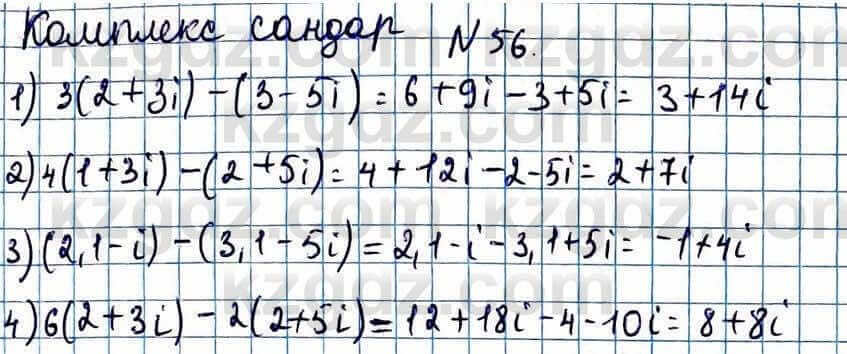 Комплекс сандар №56.
1) 3(2+3i)-(3-5i)=6+9i-3+5i=3+14i
2) 4(1+3i)-(2+5i)=4+12i-2-5i=2+7i
3) (2,1-i)-(3,1-5i)=2,1-i-3,1+5i=-1+4i
4) 6(2+3i)-2(2+5i)=12+18i-4-10i=8+8i
kzgdz.com